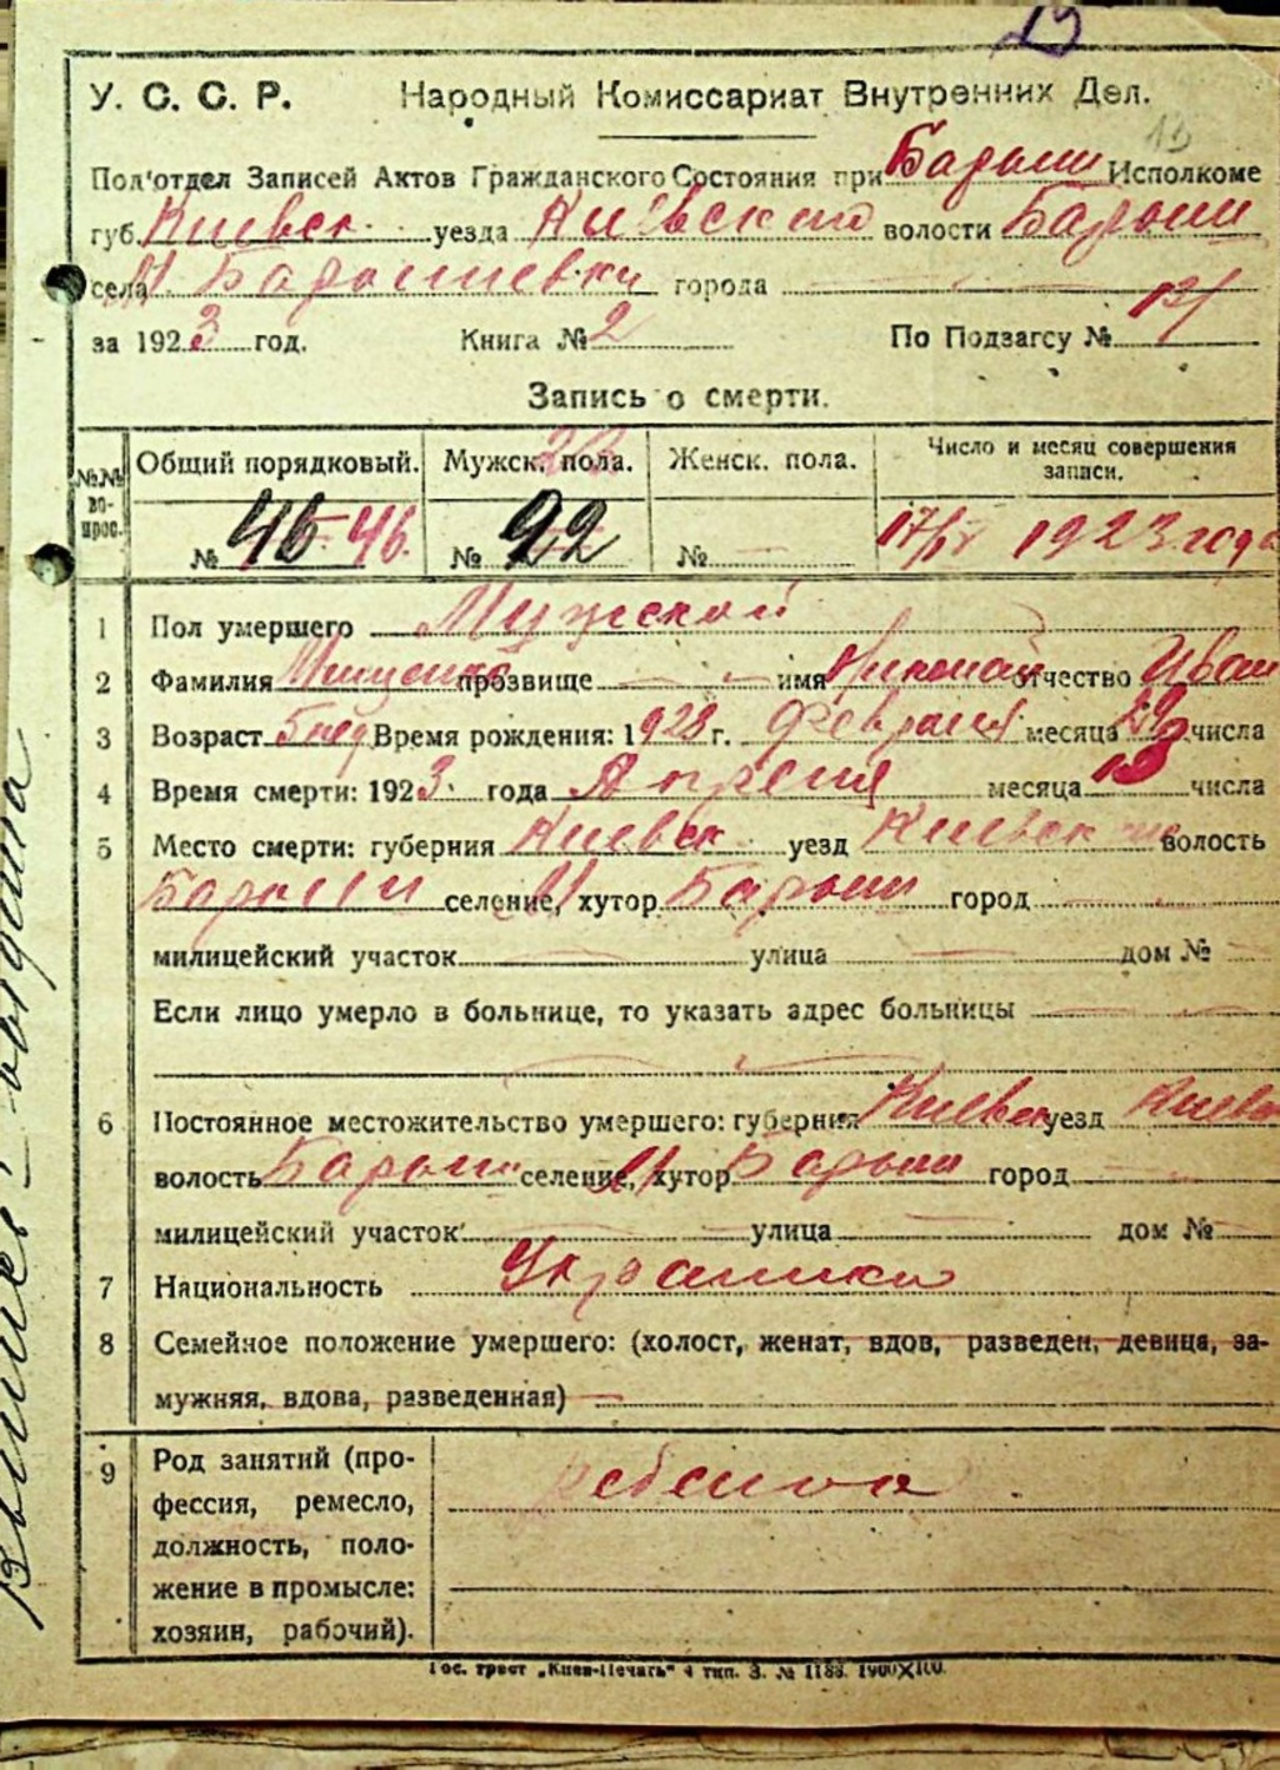 У. С. С. Р. Народный Комиссариат Внутренних Дел.
Под'отдел Записей Актов Гражданского Состояния при Барыш Исполкоме
губ. Киевск. уезда Киевского волости Барыш
села М. Барышевки города
за 1923 год. Книга № 2 По Подзагсу №
Запись о смерти.
№№ вопрос. Общий порядковый. Мужск. пола. Женск. пола. Число и месяц совершения записи.
№ 46 46. № 22 № 17/IV 1923 года
1 Пол умершего Мужской
2 Фамилия Мищенко прозвище имя Николай отчество Иван
3 Возраст 5 нед Время рождения: 1923 г. Февраля месяца числа
4 Время смерти: 1923. года Апреля месяца числа
5 Место смерти: губерния Киевск уезд Киевский волость
Барыш селение, М хутор Барыш город
милицейский участок улица дом №
Если лицо умерло в больнице, то указать адрес больницы
6 Постоянное местожительство умершего: губерния Киевск уезд Киевск
волость Барыш селение, М хутор Барыш город
милицейский участок улица дом №
7 Национальность
8 Семейное положение умершего: (холост, женат, вдов, разведен, девица, за-
мужняя, вдова, разведенная)
9 Род занятий (про-
фессия, ремесло,
должность, поло-
жение в промысле:
хозяин, рабочий).
ребенок
Гос. трест „Киев-Печать" 4 тип. З. № 1188. 1900X100.